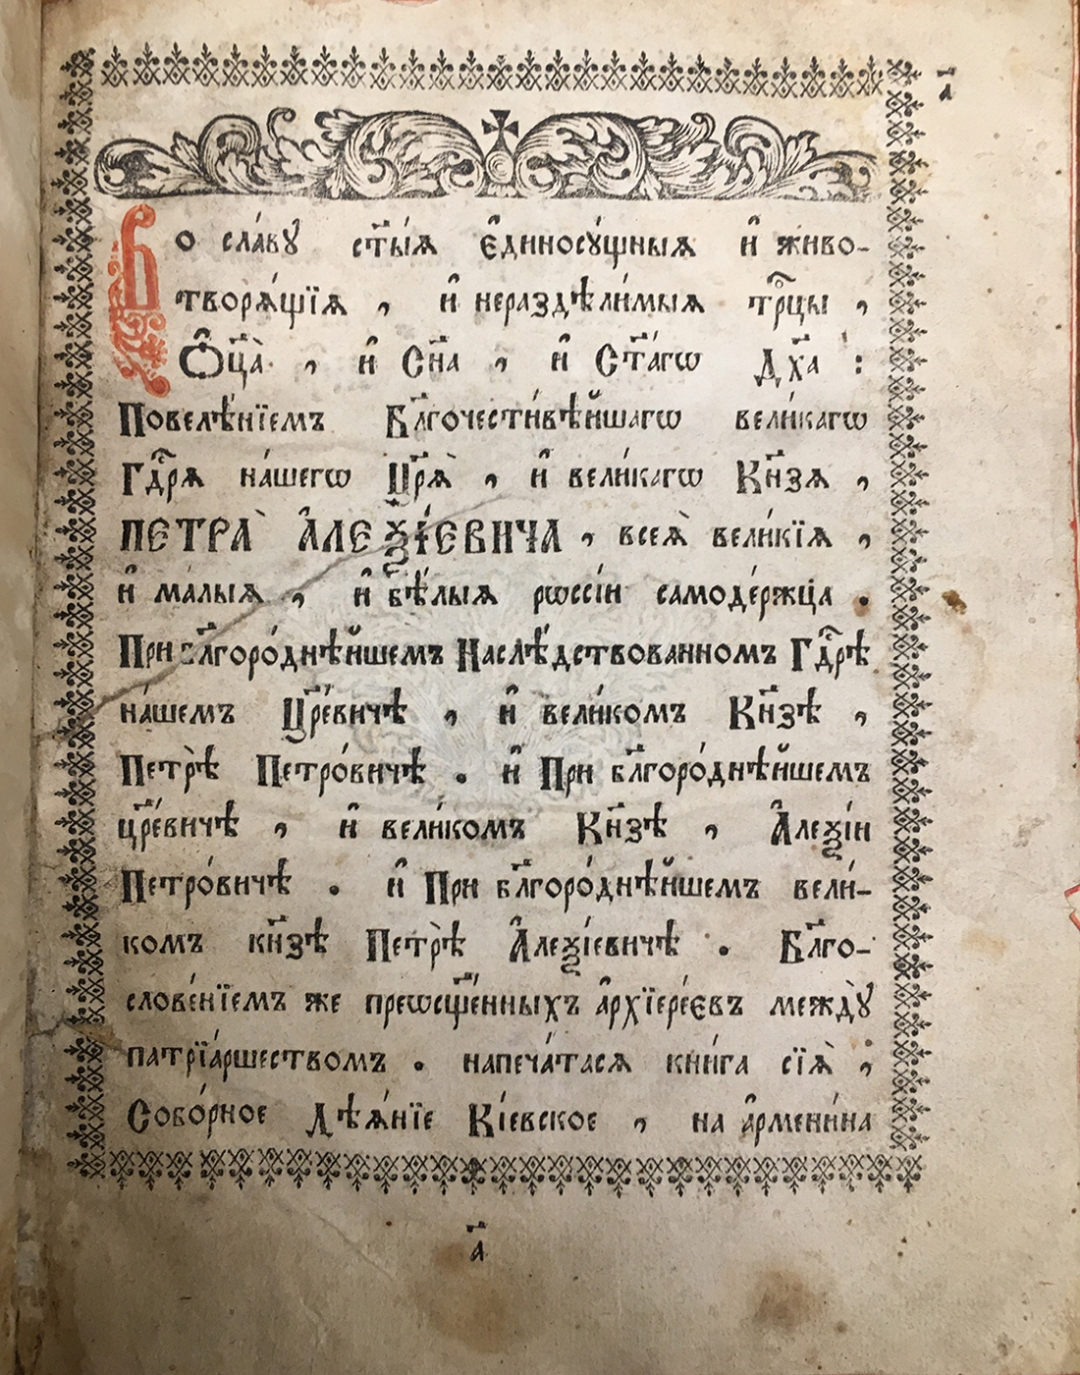 а҃
Во сла́ву ст҃ы́ѧ є҆диносу́щныѧ и҆ живо-
творѧ́щїѧ , и҆ нераздѣли́мыѧ трⷪ҇цы ,
Ѻ҆ц҃а̀ , и҆ Сн҃а , и҆ Ст҃а́гѡ Дх҃а :
Повелѣ́нїемъ Бл҃гочести́вѣйшагѡ вели́кагѡ
Гдⷭ҇рѧ на́шегѡ Цр҃ѧ̀ , и҆ вели́кагѡ Кн҃зѧ ,
ПЕТРА̀ А҆ЛЕѮІ́ЕВИЧА , всеѧ̀ вели́кїѧ ,
и҆ ма́лыѧ , и҆ бѣ́лыѧ рѡссі́и самоде́ржца .
При бл҃горо́днѣйшемъ Наслѣ́дствованномъ Гдⷭ҇рѣ
на́шемъ Цр҃е́вичѣ , и҆ вели́комъ Кн҃зѣ ,
Петрѣ̀ Петро́вичѣ . и҆ При бл҃горо́днѣйшемъ
цр҃е́вичѣ , и҆ вели́комъ Кн҃зѣ , А҆леѯі́и
Петро́вичѣ . и҆ При бл҃горо́днѣйшемъ вели́-
комъ кн҃зѣ Петрѣ̀ А҆леѯі́евичѣ . Бл҃го-
слове́нїемъ же преѡсщ҃е́нныхъ а҆рхїере́євъ междꙋ̀
патрїа́ршествомъ . напеча́тасѧ кни́га сїѧ̀ ;
Собо́рное Дѣѧ́нїе Кі́евское , на а҆рмени́на
а҃